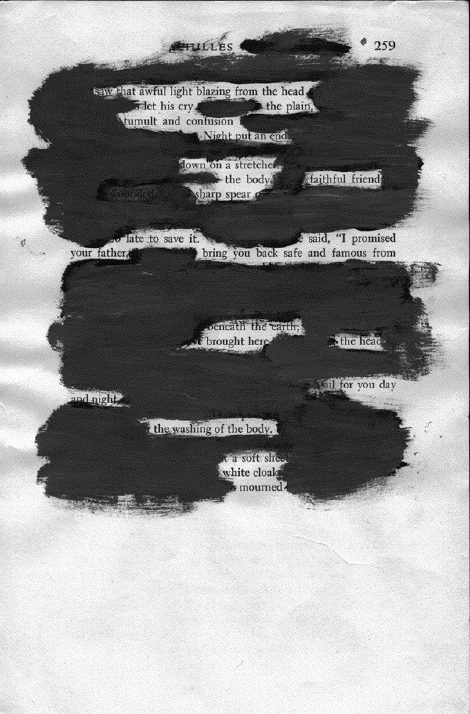 ACHILLES 259
saw that awful light blazing from the head
let his cry the plain,
tumult and confusion
Night put an end
down on a stretcher
the body, faithful friend
sharp spear
late to save it. said, “I promised
your father, bring you back safe and famous from
beneath the earth;
brought here the head
for you day
and night
the washing of the body.
a soft sheet
white cloak
mourned